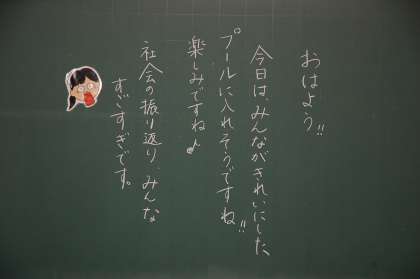 おはよう!!
今日は、みんながきれいにした、
プールに入れそうですね!!
楽しみですね♪
社会の振り返り、みんな
すごすぎです。